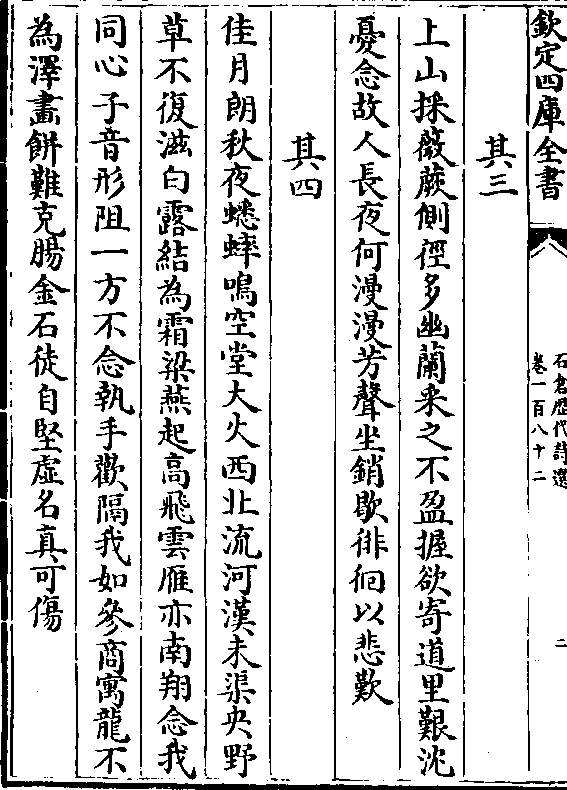 欽定四庫全書
石倉歷代詩選
卷一百八十二
二
其三
上山採薇蕨側徑多幽蘭采之不盈握欲寄道里艱沈
憂念故人長夜何漫漫芳聲坐銷歇徘徊以悲歎
其四
佳月朗秋夜蟋蟀鳴空堂大火西北流河漢未渠央野
草不復滋白露結為霜梁燕起高飛雲雁亦南翔念我
同心子音形阻一方不念執手歡隔我如參商寓龍不
為澤畫餅難克腸金石徒自堅虛名真可傷